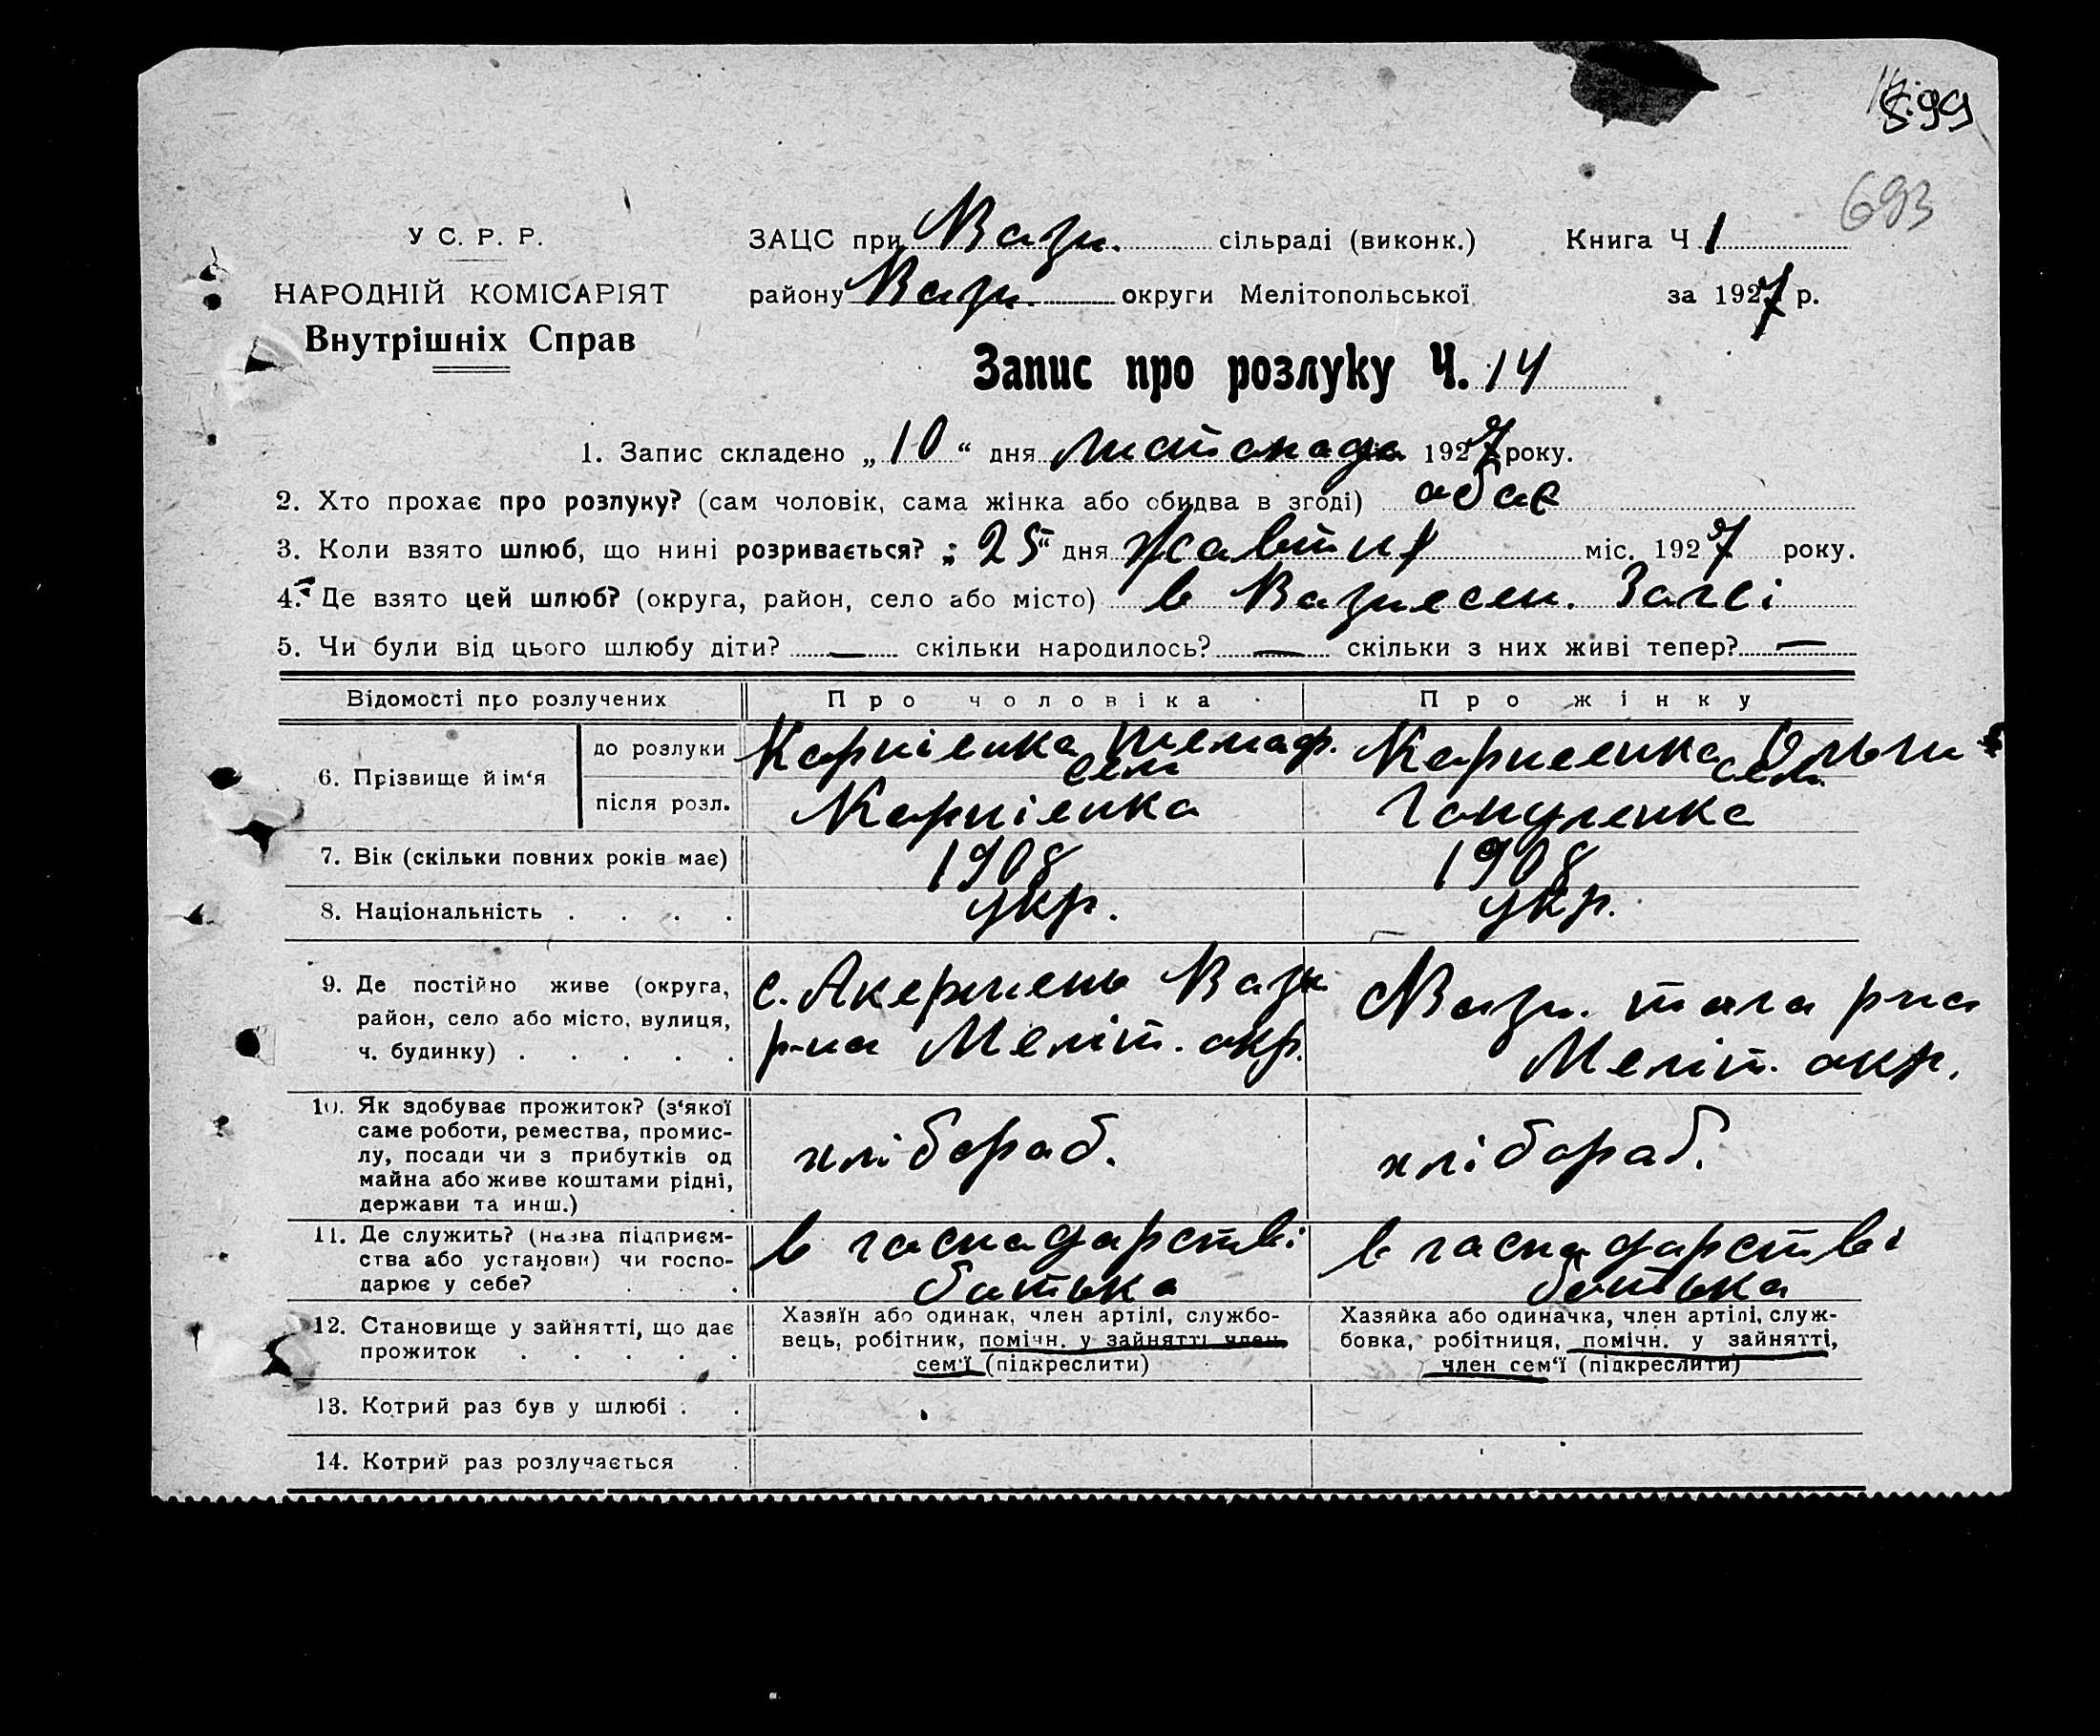 693
У С. Р. Р.
НАРОДНІЙ КОМІСАРІЯТ
Внутрішніх Справ
ЗАЦС при Вазн. сільраді (виконк.) Книга Ч 1
району Вазн. округи Мелітопольської за 1927 р.
Запис про розлуку Ч. 14
1. Запис складено „10“ дня листопада 1927 року.
2. Хто прохає про розлуку? (сам чоловік, сама жінка або обидва в згоді) обає
3. Коли взято шлюб, що нині розривається? „25“ дня жавтня міс. 1927 року.
4. Де взято цей шлюб? (округа, район, село або місто) в Вазнесен. Загсі
5. Чи були від цього шлюбу діти? — скільки народилось? — скільки з них живі тепер? —
Відомості про розлучених Про чоловіка Про жінку
6. Прізвище й ім‘я
до розлуки Карпієнка Карпеенка
після розл. Карпієнка
7. Вік (скільки повних років має) 1908 1908
8. Національність . . . . укр. укр.
9. Де постійно живе (округа, район, село або місто, вулиця, ч. будинку) . . . . .
с. Акермень Вазн. р-на Меліт. окр.
Вазн. р-на Меліт. окр.
10. Як здобуває прожиток? (з‘якої
саме роботи, ремества, промис-
лу, посади чи з прибутків од
майна або живе коштами рідні,
держави та инш.)
хлібораб. хлібораб.
11. Де служить? (назва підприєм-
ства або установи) чи госпо-
дарює у себе? . . .
в гаспадарстві батька
в гаспадарстві батька
12. Становище у зайнятті, що дає
прожиток . . . . .
Хазяїн або одинак, член артілі, службо-
вець, робітник, помічн. у зайнятті член
сем‘ї (підкреслити)
Хазяйка або одиначка, член артілі, служ-
бовка, робітниця, помічн. у зайнятті,
член сем‘ї (підкреслити)
13. Котрий раз був у шлюбі . .
14. Котрий раз розлучається .